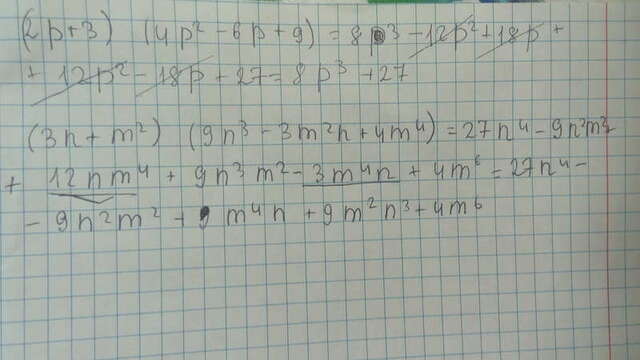 (2p+3) (4p² - 6p + 9) = 8p³ - 12p² + 18p +
+ 12p² - 18p + 27 = 8p³ + 27
(3n + m²) (9n³ - 3m²n + 4m⁴) = 27n⁴ - 9n²m²
+ 12nm⁴ + 9n³m² - 3m⁴n + 4m⁶ = 27n⁴ -
- 9n²m² + 9m⁴n + 9m²n³ + 4m⁶